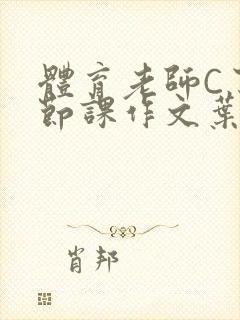 體育老師C
節課作文葉
肖邦